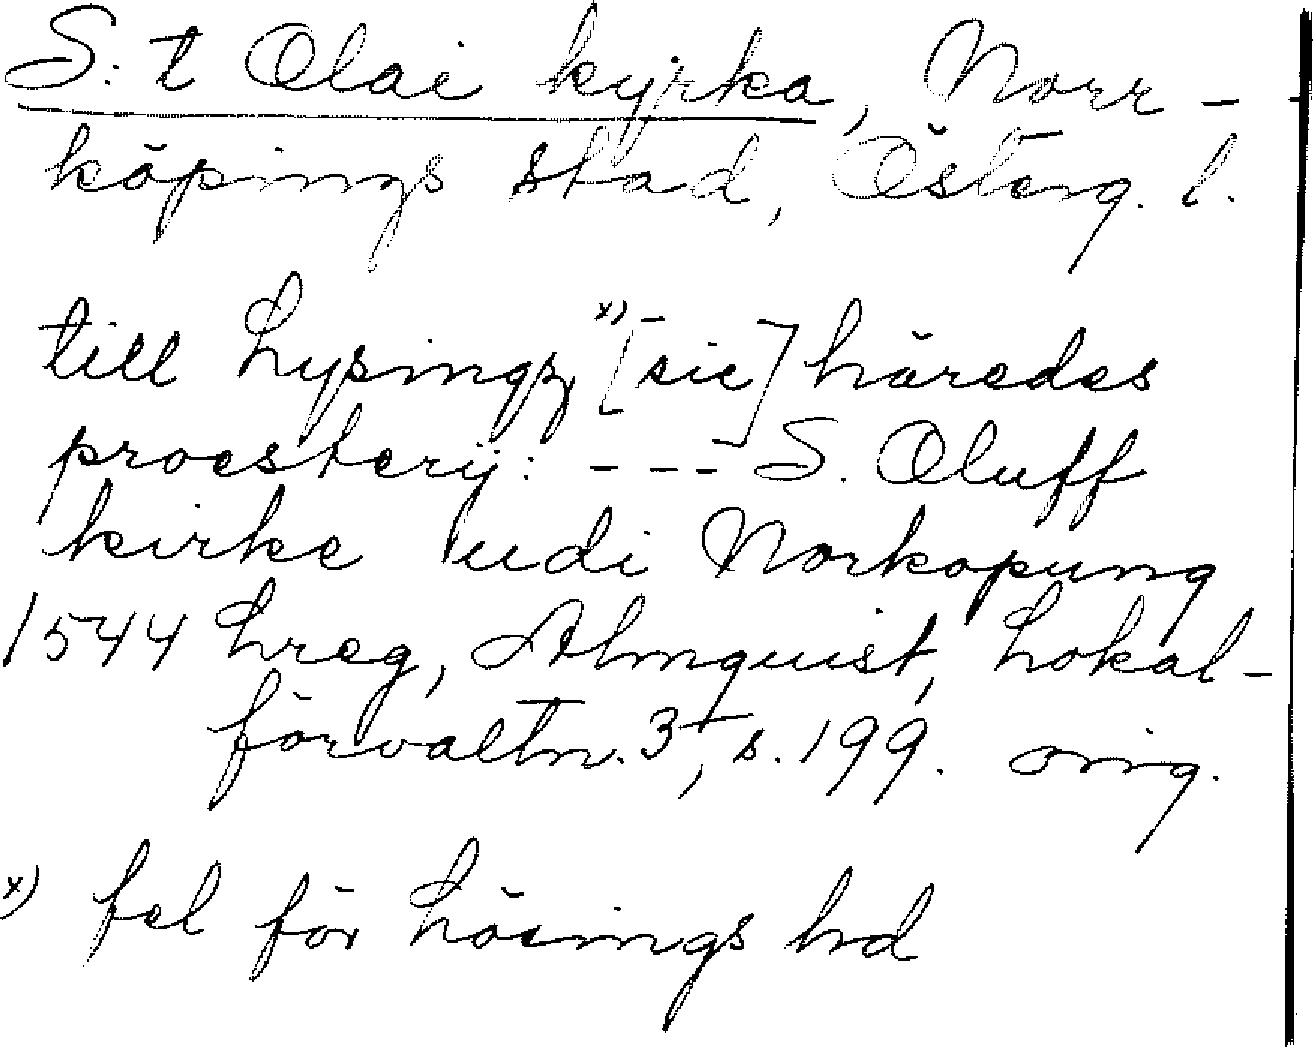 S:t Olai kyrka, Norr-
köpings stad, Österg. l.
till Lysingz x) [sic] häredes
proesterij: --- S. Oluff
kirke udi Norkopung
1544 Lreg, Almquist, Lokal-
förvaltn. 3, s. 199. orig.
x) fel för Lösings hd